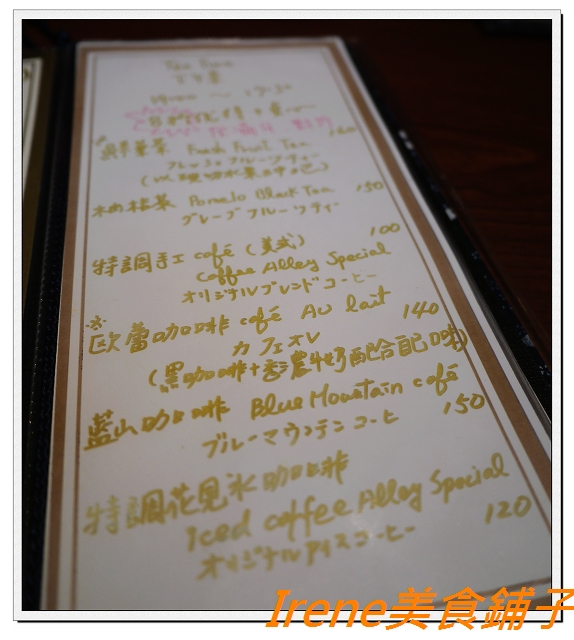 Tea Time
下午茶
Fresh Fruit Tea 160
フレッシュフルーツティ
柚桔茶 Pomelo Black Tea 150
グレープフルーツティ
特調手工 café (美式) 100
Coffee Alley Special
オリジナルブレンドコーヒー
歐蕾咖啡 café AU lait 140
カフェオレ
(黑咖啡+香濃牛奶配合配味)
藍山咖啡 Blue Mountain café
ブルーマウンテンコーヒ 150
特調花見冰咖啡
Iced coffee Alley Special
オリジナルアイスコーヒー 120
Irene美食鋪子